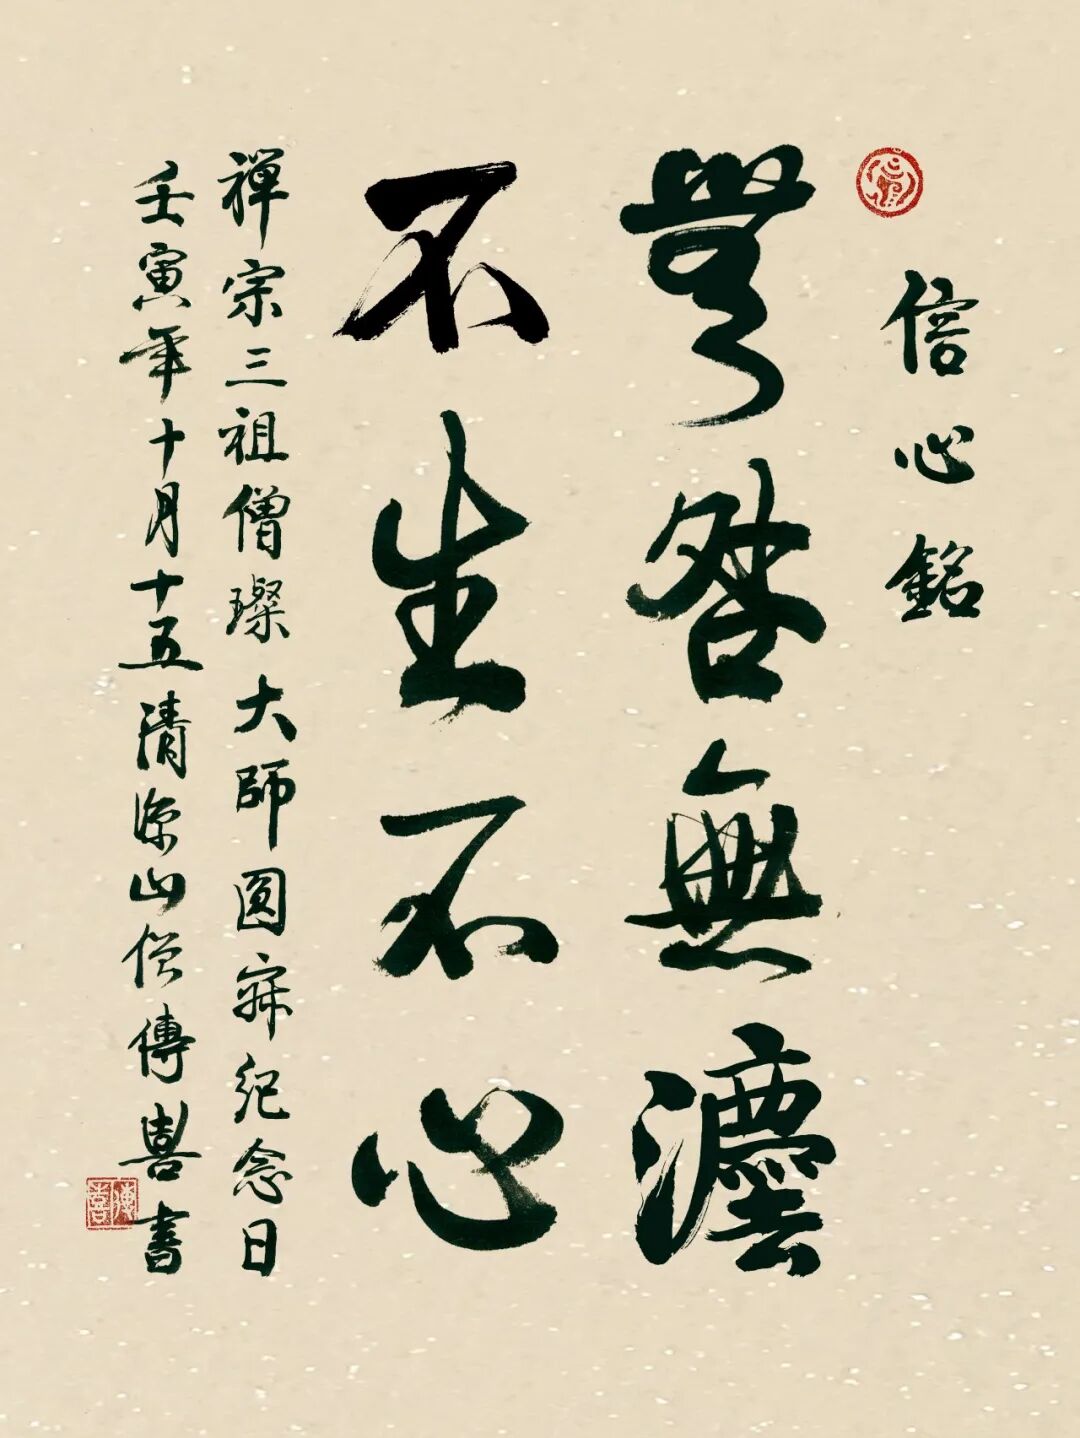 信心銘
無咎無灋
不生不心
禪宗三祖僧璨大師圓寂紀念日
壬寅年十月十五清源山僧傳喜書
傳喜